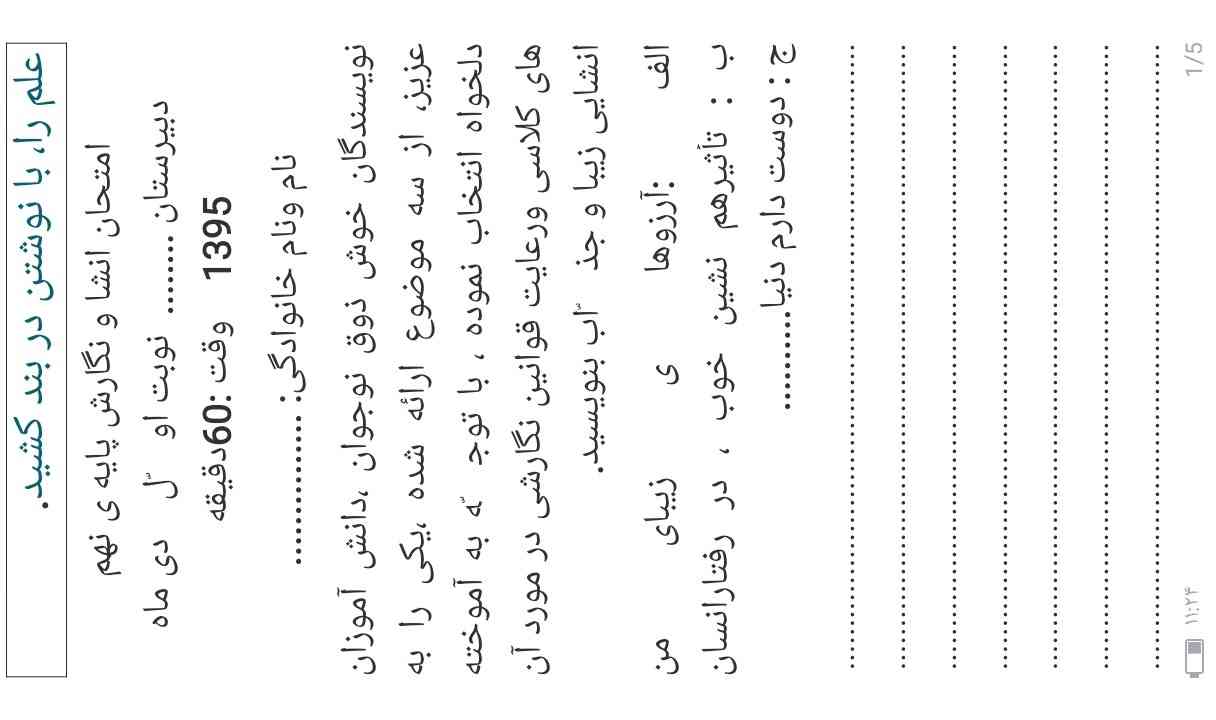 علم را، با نوشتن در بند کشید.
امتحان انشا و نگارش پایه ی نهم
دبیرستان ......... نوبت او ّل دی ماه
1395 وقت :60دقیقه
نام ونام خانوادگی: ................
نویسندگان خوش ذوق نوجوان ،دانش آموزان
عزیز، از سه موضوع ارائه شده ،یکی را به
دلخواه انتخاب نموده ، با توج ّه به آموخته
های کلاسی ورعایت قوانین نگارشی در مورد آن
انشایی زیبا و جذ ّاب بنویسید.
الف :آرزوها ی زیبای من
ب : تأثیرهم نشین خوب ، در رفتارانسان
ج : دوست دارم دنیا..........
1/5
۱۱:۲۴